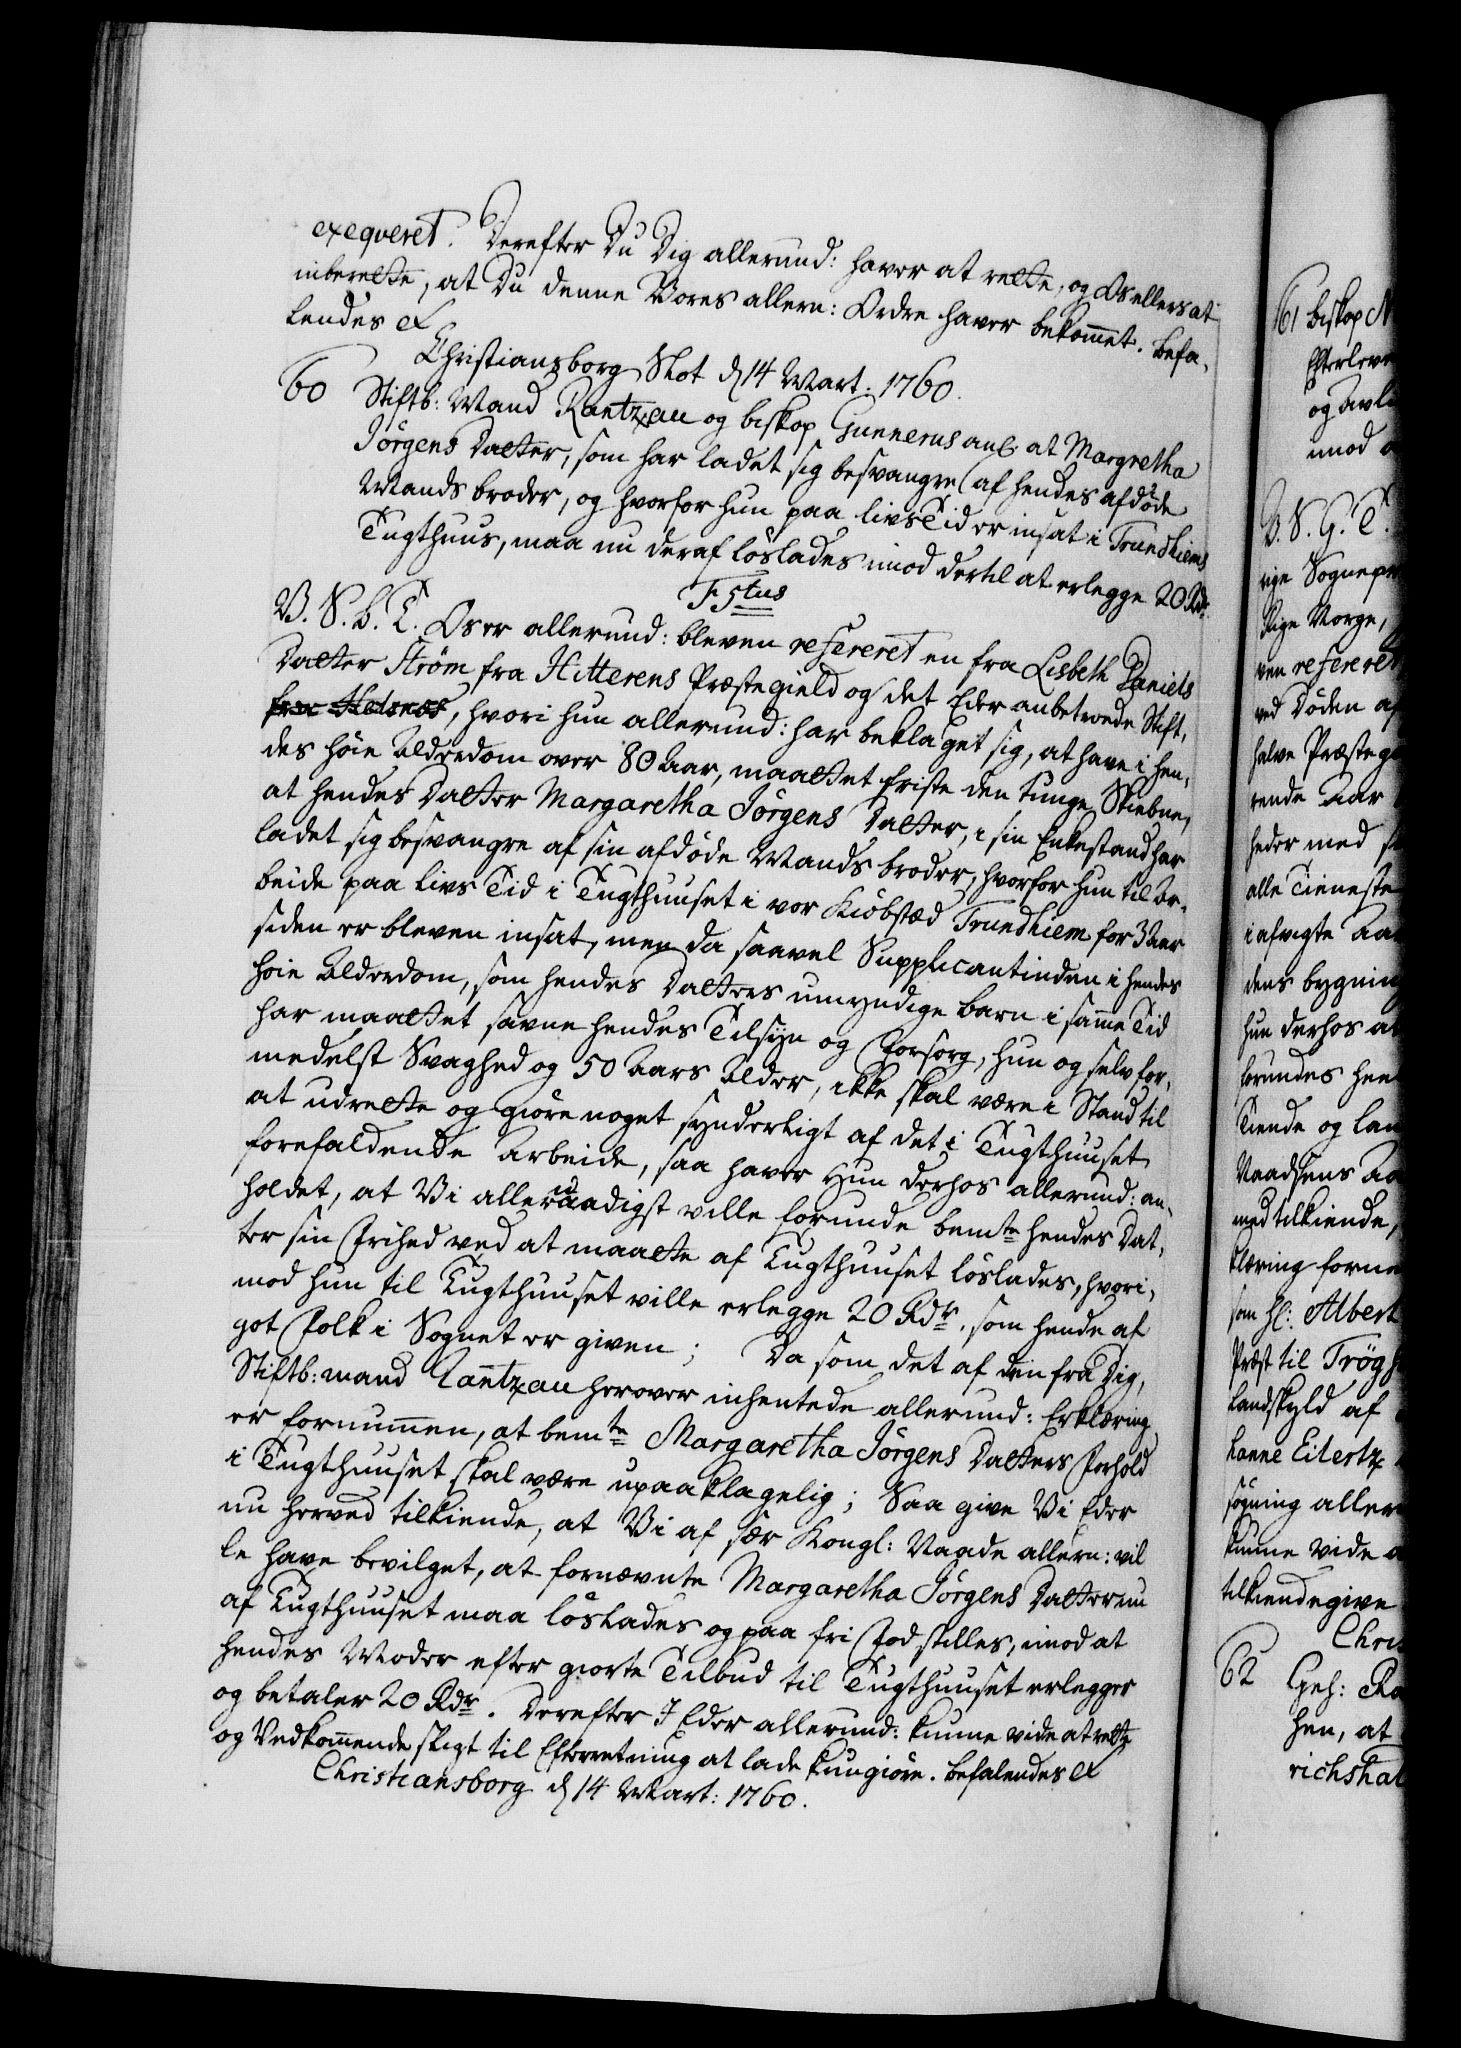 exeqveret. Derefter Du Dig allerund: haver at rette, og Os ellers at
inberette, at Du denne Vores allern: Ordre haver bekommet. Befa-
lendes &
Christiansborg Slot d 14 Mart: 1760.
60 Stiftb: Mand Rantzau og biskop Gunnerus anl. at Margretha
Jörgens Datter, som har ladet sig besvangre af hendes afdöde
Mands broder, og hvorfor hun paa livs Tid er insat i Trundhiems
Tugthuus, maa nu deraf löslades imod dertil at erlegge 20 Rdr.
F 5tus
V. S. B. T. Os er allerund: bleven refereret en fra Lisbeth Daniels
Datter Ström fra Hitterens Præstegield og det Eder anbetroede Stift,
fra Helsnæs, hvori hun allerund: har beklaget sig, at have i hen-
des höie Alderdom over 80 Aar, maattet friste den tunge Skiebne,
at hendes Datter Margaretha Jörgens Datter, i sin Enkestand har
ladet sig besvangre af sin afdöde Mands broder, hvorfor hun til Ar-
beide paa livs Tid i Tugthuuset i vor Kiöbstæd Trundhiem for 3 Aar
siden er bleven insat, men da saavel Supplicantinden i hendes
höie Alderdom, som hendes Datters umyndige barn i samme Tid
har maattet savne hendes Tilsyn og Forsorg, hun og selv for-
medelst Svaghed og 50 Aars Alder, ikke skal være i Stand til
at udrette og giöre noget synderligt af det i Tugthuuset
forefaldende Arbeide, saa haver Hun derhos allerund: an-
holdet, at Vi allernaadigst ville forunde bemte hendes Dat-
ter sin Frihed ved at maatte af Tugthuuset löslades, hvori-
mod hun til Tugthuuset ville erlegge 20 Rdr., som hende af
got Folk i Sognet er given; Da som det af den fra Dig,
Stiftb: mand Rantzau herover inhentede allerund: Erklæring
er fornummen, at bemte Margaretha Jörgens Datters Forhold
i Tugthuuset skal være upaaklagelig; Saa give Vi Eder
nu herved tilkiende, at Vi af sær Kongl: Naade allern: vil
le have bevilget, at fornævnte Margaretha Jörgens Datter nu
af Tugthuuset maa löslades og paa fri Fod stilles, imod at
hendes Moder efter giorte Tilbud til Tugthuuset erlegger
og betaler 20 Rdr. Derefter I Eder allerund: kunne vide at rette
og Vedkommende sligt til Efterretning at lade kungiöre. Befalendes &
Christiansborg d 14 Mart: 1760.
61 biskop N
Efterlever
og
imod
V. S. G. T.
Sognepr
Rige Norge,
ven refereret
ved Döden af
halve Præstege
rende Aar
heder med
alle Tieneste
i afvigte Aar
dens bygning
hun derhos at
forundes
Tiende og lan
Naadsens Aa
med tilkiende,
klæring forne
som Hl: Albert
Præst til Trögst
Landskyld af
Hanne Eilertz
sögning aller
kunne vide a
tilkiendegive
Chris
62 Geh: Ra
hen, at
richshal